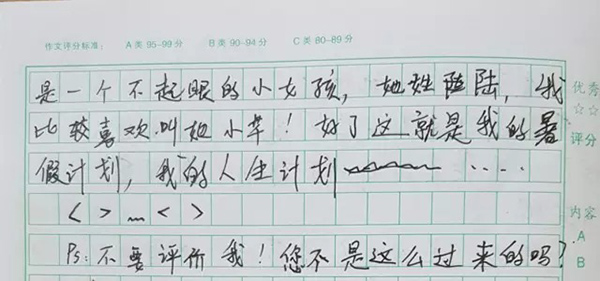 作文评分标准： A类 95-99分 B类 90-94分 C类 80-89分
是一个不起眼的小女孩，她姓陆，我 优秀
☆☆
比较喜欢叫她小芊！好了这就是我的暑 评分
假计划，我的人生计划 ....
< > … < > 内容
A
Ps：不要评价我！您不是这么过来的吗？ B